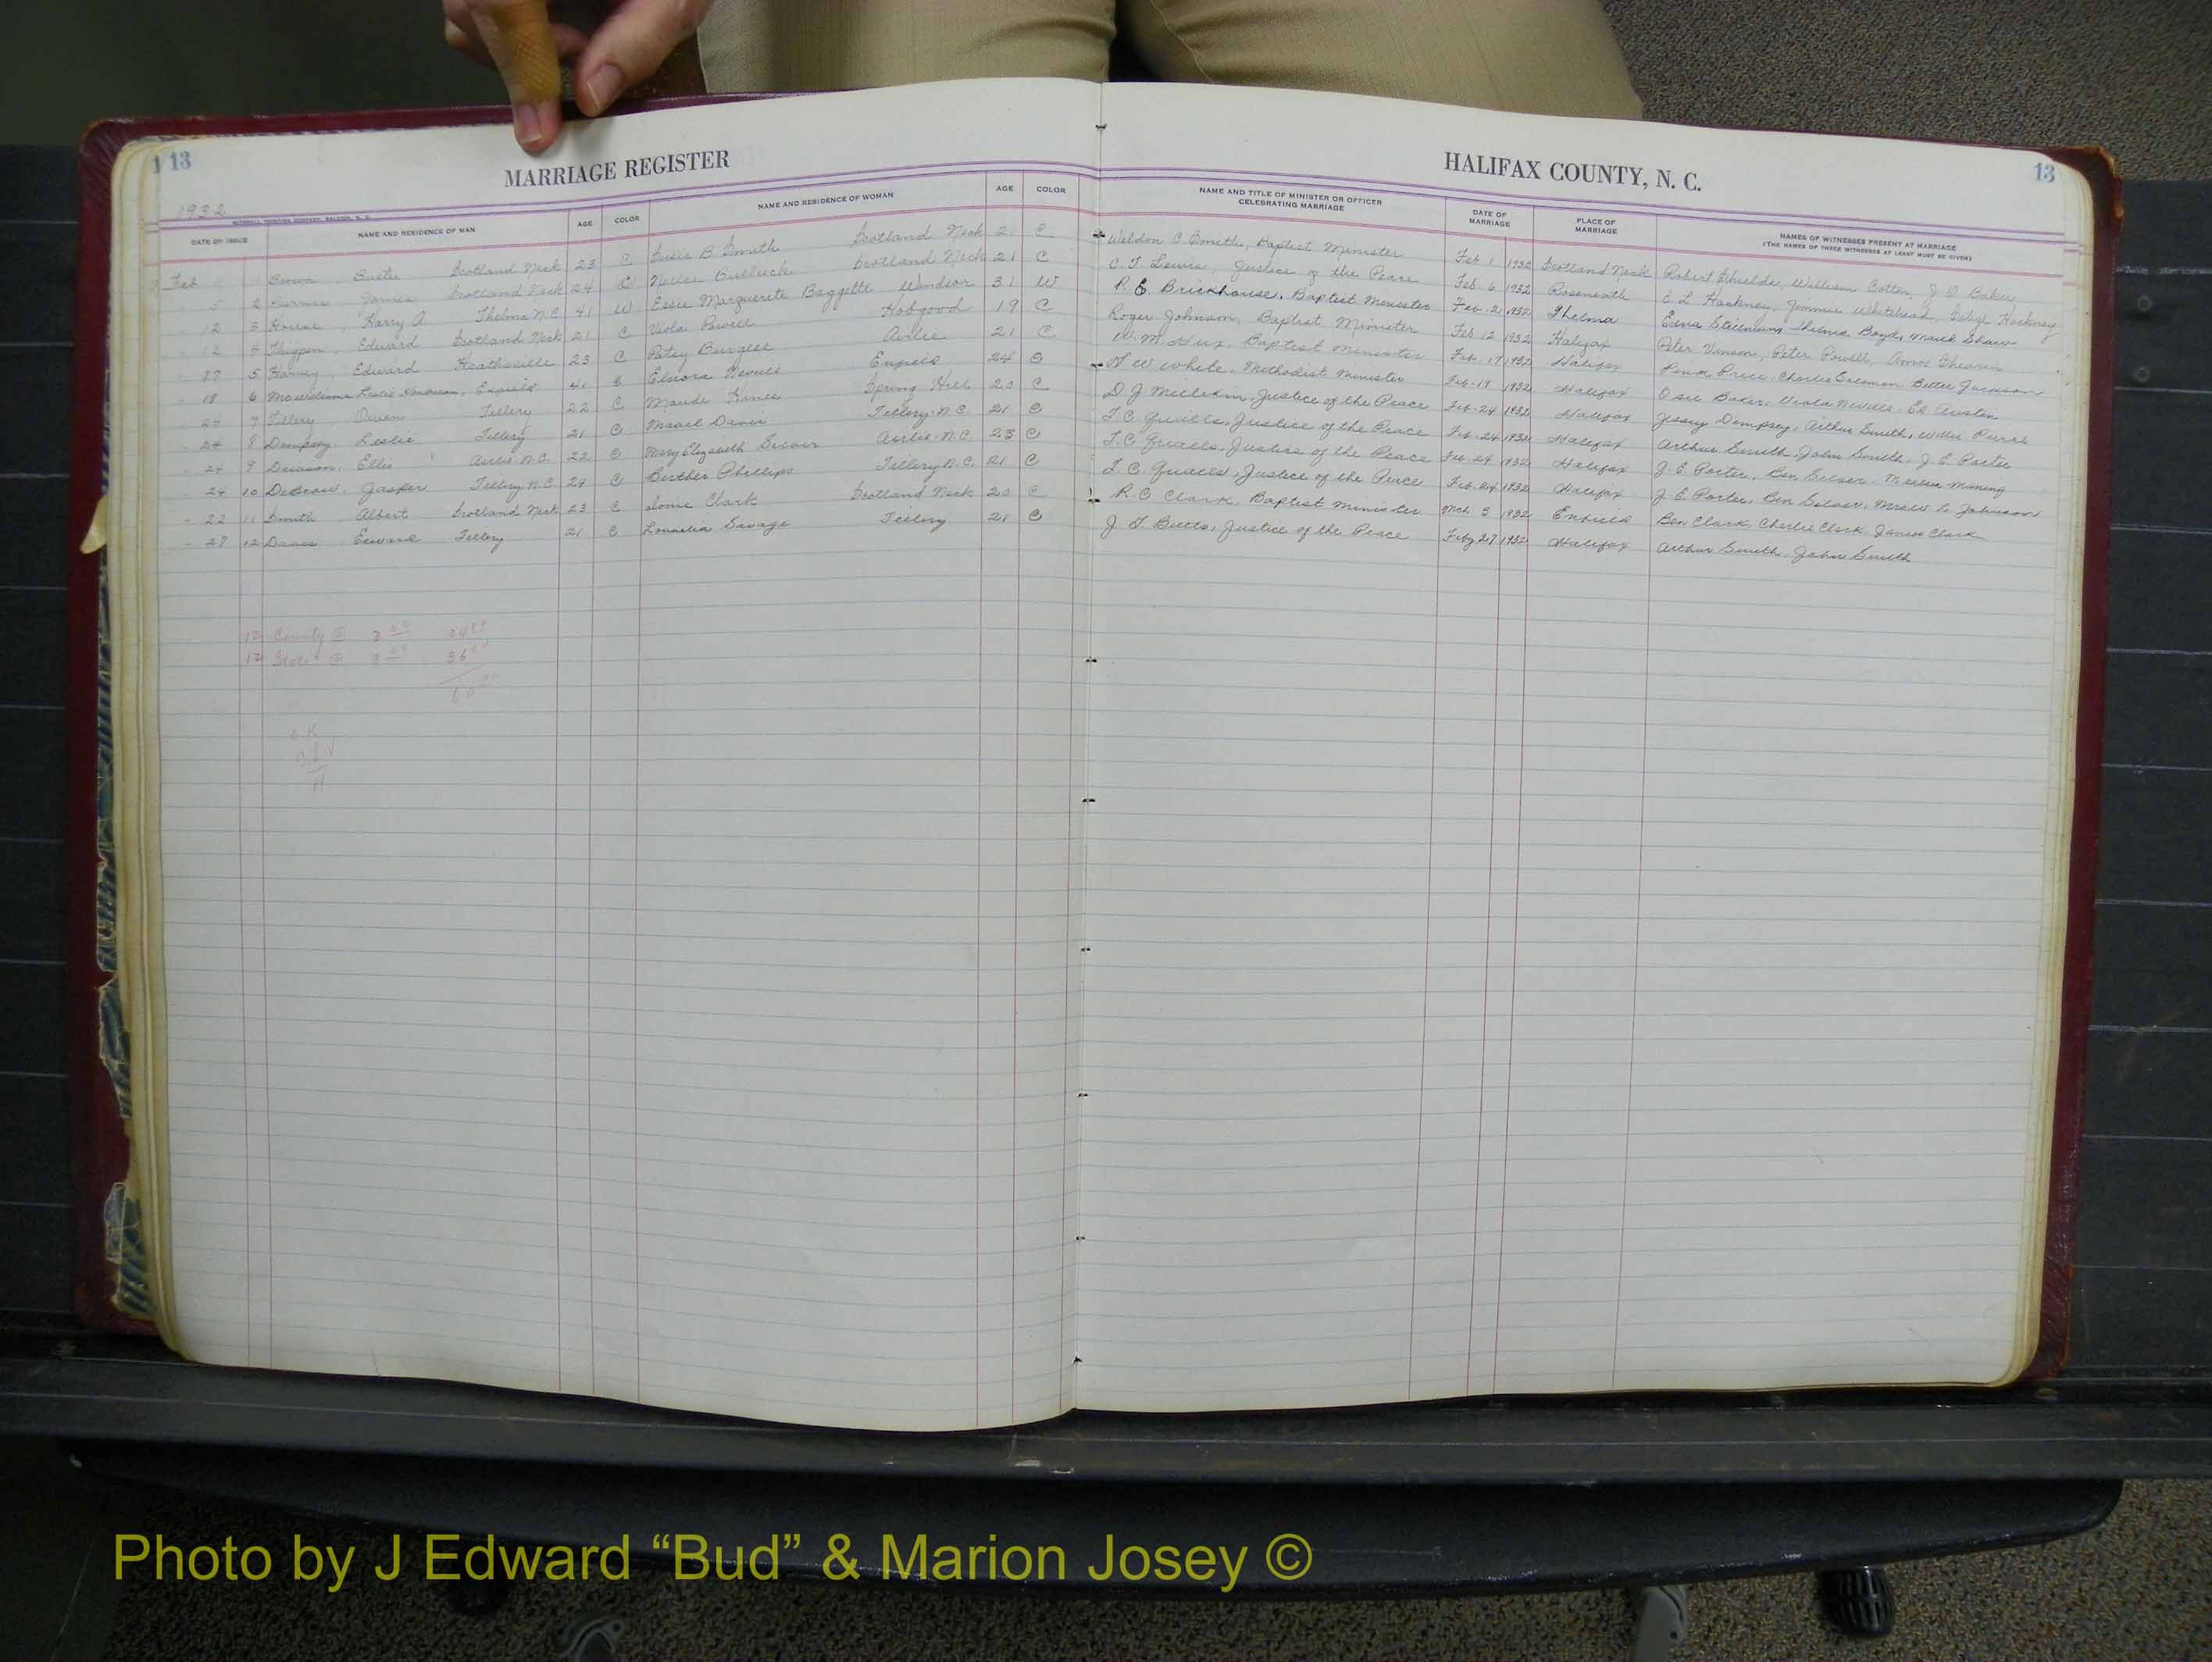 1 13
MARRIAGE REGISTER
HALIFAX COUNTY, N. C.
13
1932
DATE OF ISSUE NAME AND RESIDENCE OF MAN AGE COLOR NAME AND RESIDENCE OF WOMAN AGE COLOR NAME AND TITLE OF MINISTER OR OFFICER CELEBRATING MARRIAGE DATE OF MARRIAGE PLACE OF MARRIAGE NAMES OF WITNESSES PRESENT AT MARRIAGE (THE NAMES OF THREE WITNESSES AT LEAST MUST BE GIVEN)
Feb 1 1 Brown Buster Scotland Neck 23 C Susie B Smith Scotland Neck 21 C Weldon C Smith, Baptist Minister Feb 1 1932 Scotland Neck Robert Shields, William Cotten, Baker
5 2 James Scotland Neck 24 C Nellie Bullock Scotland Neck 21 C C. T. Lewis, Justice of the Peace Feb. 6 1932 Roseneath C L Hackney, Jimmie Whitehead, Hackney
12 3 House, Harry A. Thelma N.C. 41 W Essie Marguerite Baggette Windsor 31 W R E Brickhouse, Baptist Minister Feb 21 1932 Thelma Edna Thelma Boyd, Maud Shaw
12 4 Thigpen, Edward Scotland Neck 21 C Viola Powell Hobgood 19 C Roger Johnson, Baptist Minister Feb 12 1932 Halifax Peter Vinson, Peter Powell, Amos
5 Harvey, Edward Heathsville 23 C Patsy Burgess Airlie 21 C W. M. Baptist Minister Feb. 17 1932 Halifax Pink Price, Charlie Solomon, Jackson
18 6 McWilliams Leslie Enfield 41 C Nevills Enfield 24 C White, Methodist Minister Feb-19 1932 Halifax Osie Baker, Viola Nevills, Ed Austin
24 7 Tillery, Owen Tillery 22 C Maude Spring Hill 20 C D J Millikin, Justice of the Peace Feb-24 1932 Halifax Jessey Dempsey, Arthur Smith, Willie
24 8 Dempsey, Leslie Tillery 21 C Davis Tillery, N.C. 21 C T. C. Qualls, Justice of the Peace Feb-24 1932 Halifax Arthur Smith, John Smith, J. E. Porter
24 9 Ellis Airlie N.C. 22 C Mary Elizabeth Silver Airlie, N.C. 23 C T. C. Qualls, Justice of the Peace Feb 24 1932 Halifax J. E. Porter, Ben Silver
24 10 DeBrow, Jasper Tillery N.C. 29 C Berther Phillips Tillery N.C. 21 C T. C. Qualls, Justice of the Peace Feb. 24 1932 Halifax J. E. Porter, Ben Silver, Johnson
22 11 Smith, Albert Scotland Neck 23 C Clark Scotland Neck 20 C R. C Clark, Baptist Minister Mch 3 1932 Enfield Ben Clark, Charlie Clark, James Clark
27 12 Davis, Edward Tillery 21 C Savage Tillery 21 C J. T. Butts, Justice of the Peace Feby 27 1932 Halifax Arthur Smith, John Smith
12 County @ 2 00 24 00
12 State @ 3 00 36 00
60 00
O K
Photo by J Edward “Bud” & Marion Josey ©